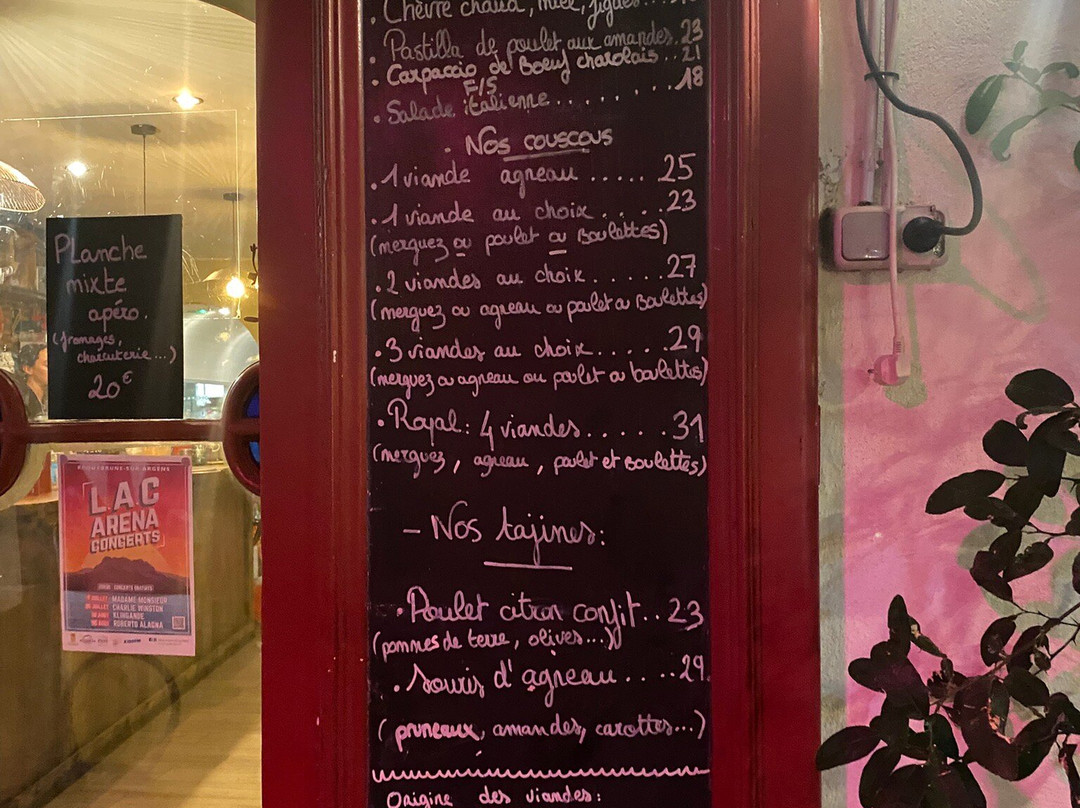 Planche
mixte
apéro.
(fromages,
charcuterie...)
20€
ROQUEBRUNE-SUR-ARGENS
L.A.C
ARENA
CONCERTS
CONCERTS GRATUITS
MADAME MONSIEUR
CHARLIE WINSTON
KLINGANDE
ROBERTO ALAGNA
. Chèvre chaud, miel, figues...
. Pastilla de poulet aux amandes. 23
. Carpaccio de Boeuf charolais.. 21
F/S
. Salade italienne........ 18
- Nos couscous
. 1 viande agneau..... 25
. 1 viande au choix..... 23
(merguez ou poulet ou Boulettes)
. 2 viandes au choix...... 27
(merguez ou agneau ou poulet ou Boulettes)
. 3 viandes au choix...... 29
(merguez ou agneau ou poulet ou boulettes)
. Royal: 4 viandes...... 31
(merguez, agneau, poulet et Boulettes)
- Nos tajines:
. Poulet citron confit.. 23
(pommes de terre, olives...)
. Souris d'agneau..... 29
(pruneaux, amandes, carottes...)
Origine des viandes: